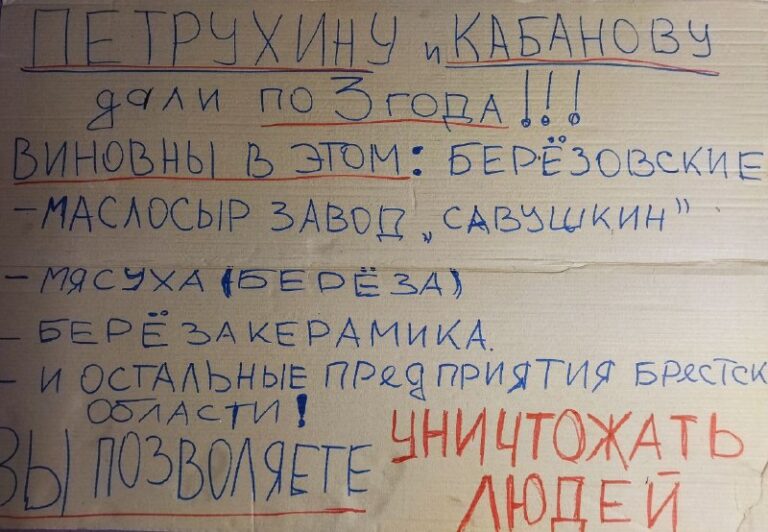 ПЕТРУХИНУ и КАБАНОВУ
дали ПО 3 ГОДА!!!
ВИНОВНЫ В ЭТОМ: БЕРЁЗОВСКИЕ
-МАСЛОСЫР ЗАВОД „САВУШКИН"
- МЯСУХА (БЕРЁЗА)
- БЕРЁЗАКЕРАМИКА.
- И ОСТАЛЬНЫЕ ПРЕДПРИЯТИЯ БРЕСТСК
ОБЛАСТИ!
ВЫ ПОЗВОЛЯЕТЕ УНИЧТОЖАТЬ
ЛЮДЕЙ